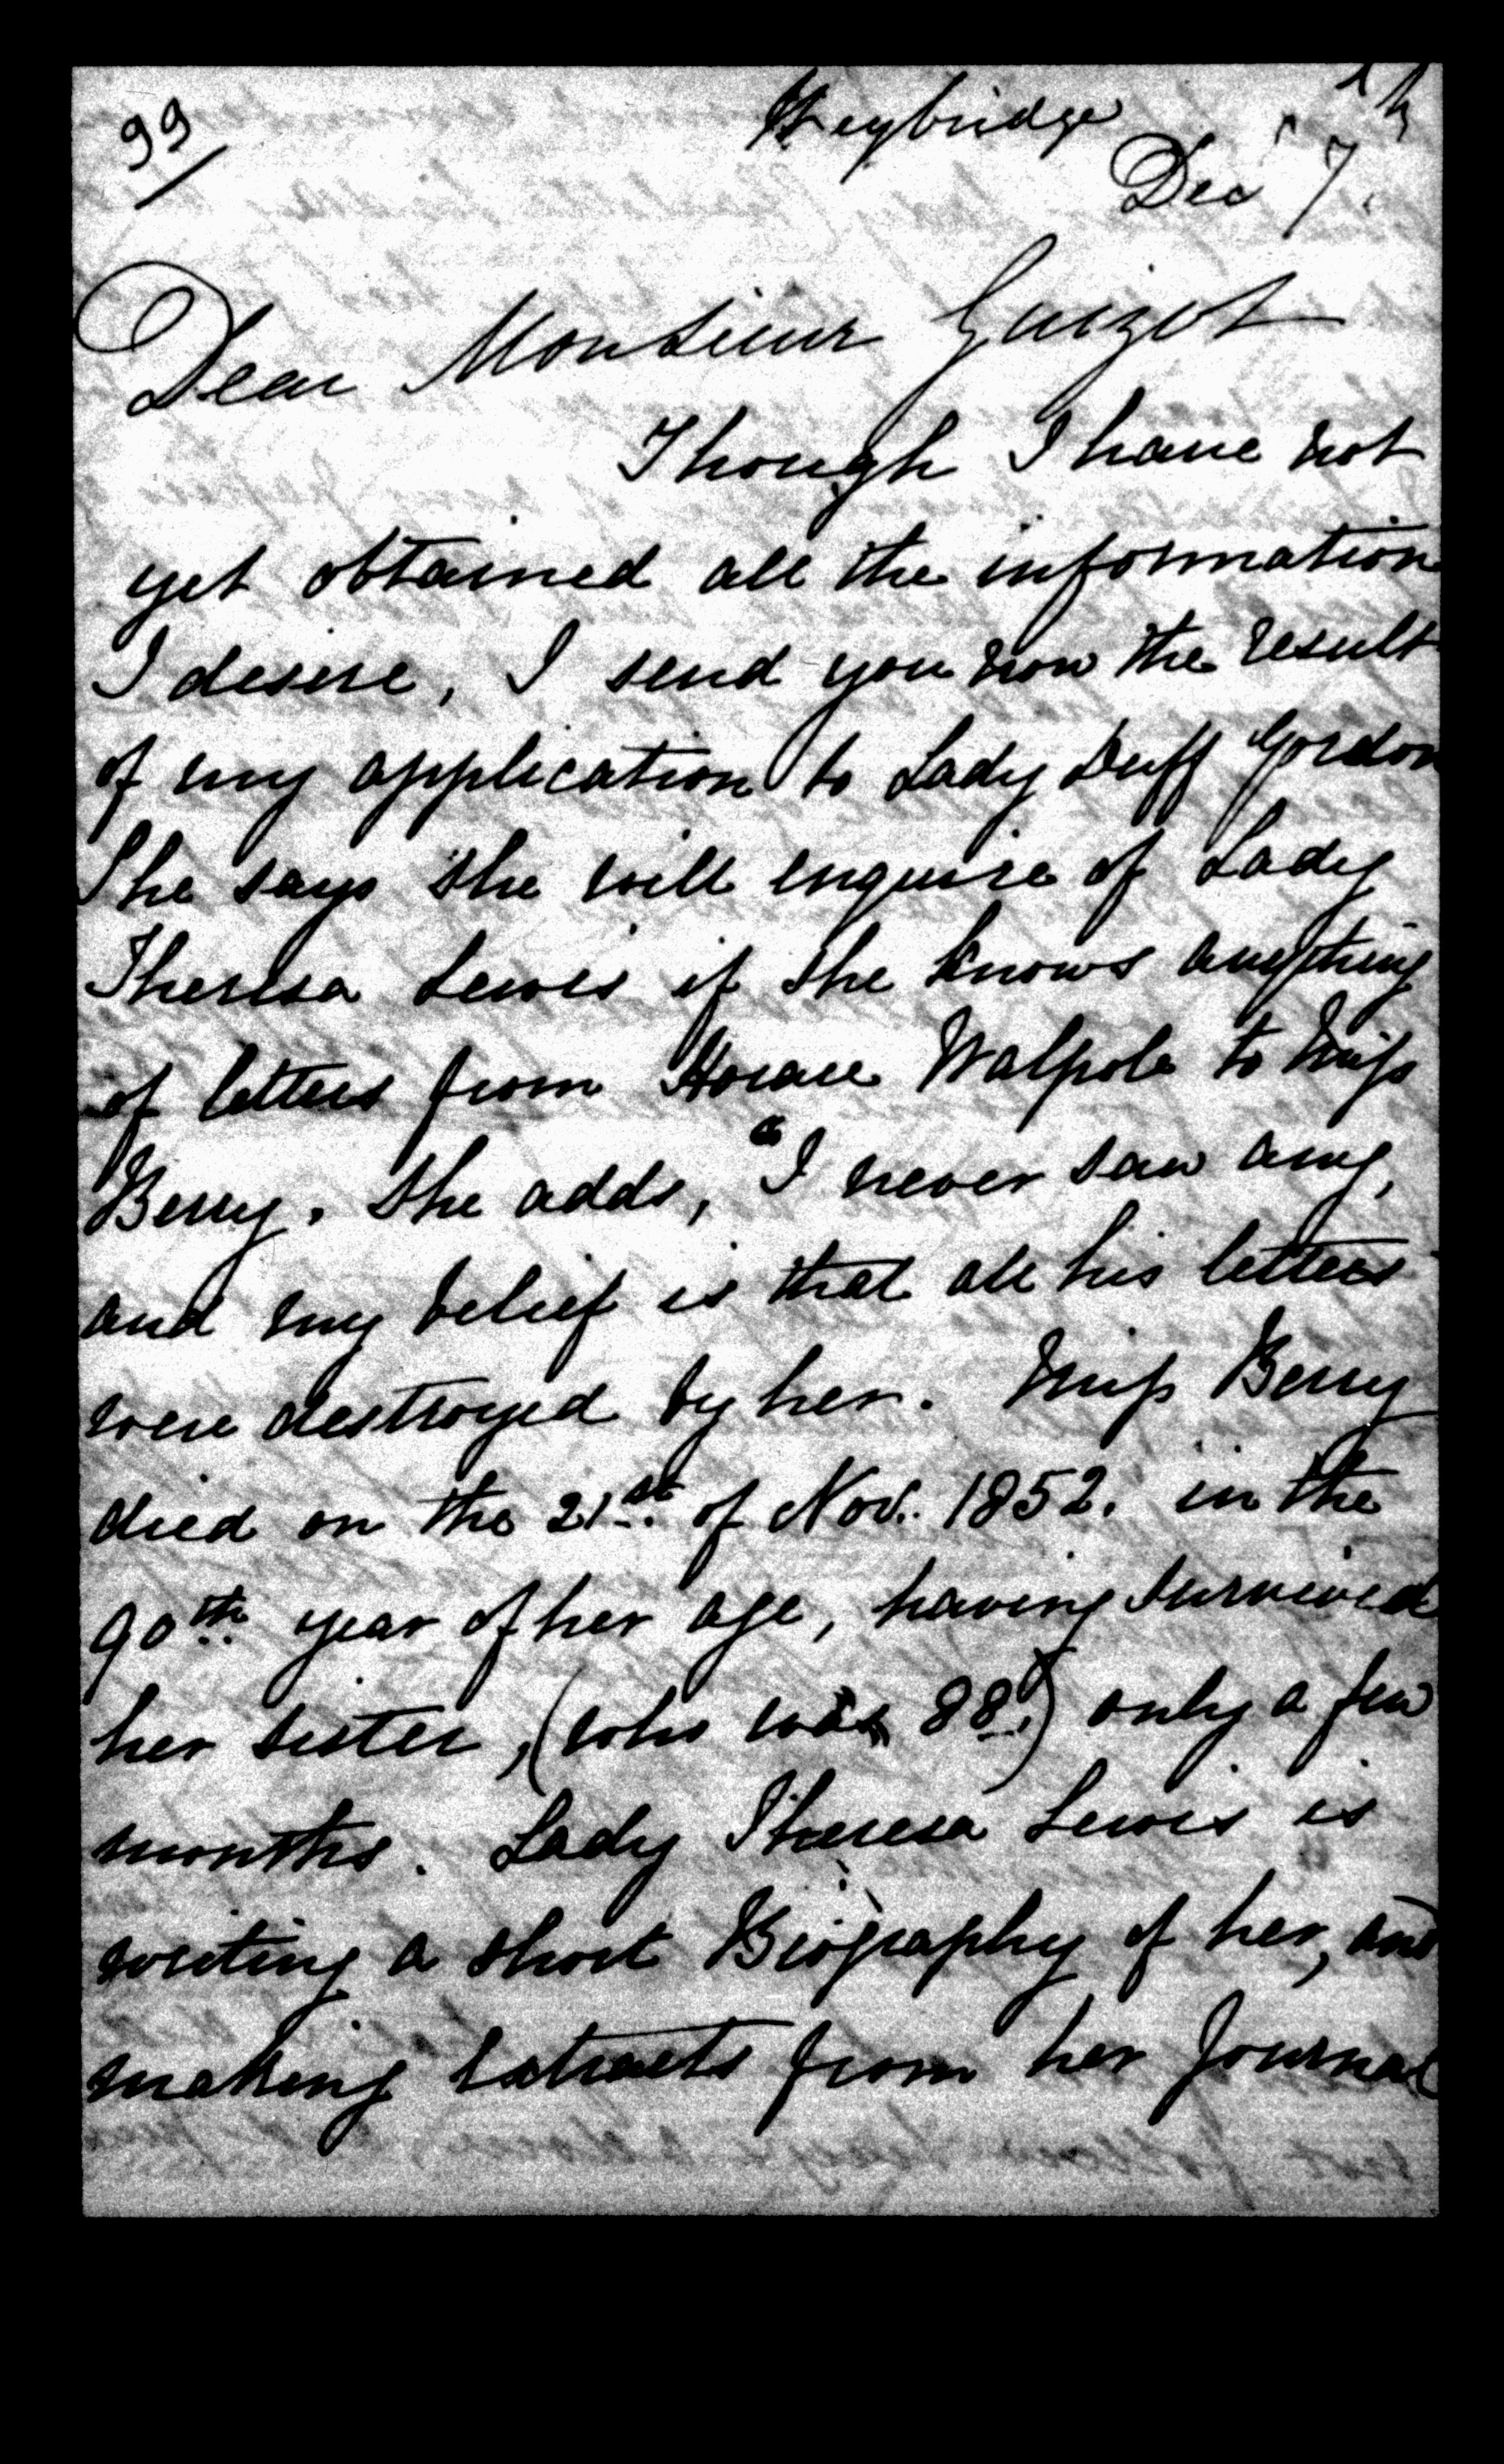 99
Weybridge
Dec 7th
Dear Monsieur Guizot
Though I have not
yet obtained all the information
I desire, I send you now the result
of my application to Lady Duff Gordon
She says she will enquire of Lady
Theresa Lewis if she knows anything
of letters from Horace Walpole to Miss
Berry. She adds, "I never saw any,
and my belief is that all his letters
were destroyed by her. Miss Berry
died on the 21st of Nov. 1852. in the
90th year of her age, having survived
her sister, (who was 88.) only a few
months. Lady Theresa Lewis is
writing a short Biography of her, and
making extracts from her Journal